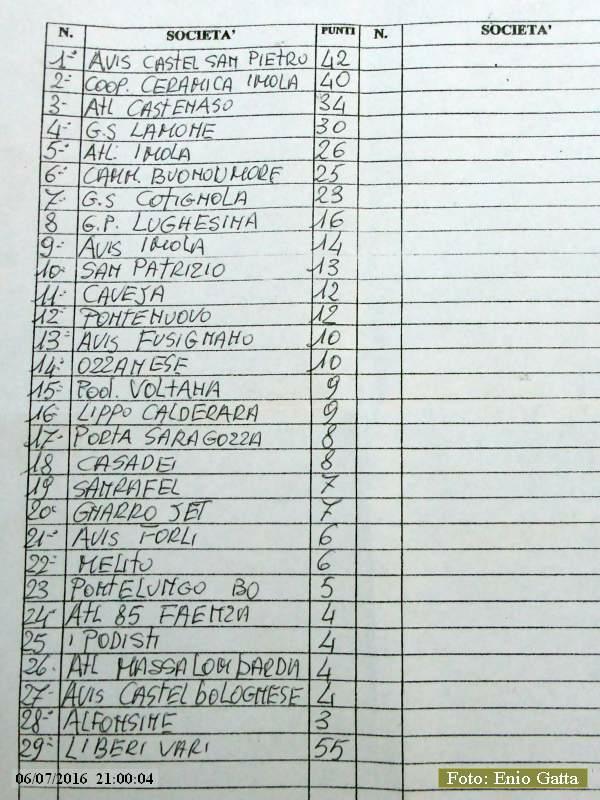 N. SOCIETA' PUNTI N. SOCIETA'
1° AVIS CASTEL SAN PIETRO 42
2- COOP. CERAMICA IMOLA 40
3- Atl CASTENASO 34
4- G.S LAMONE 30
5- Atl. IMOLA 26
6- CAMM. BUONUMORE 25
7- G.S COTIGNOLA 23
8 G.P. LUGHESINA 16
9- AVIS IMOLA 14
10- SAN PATRIZIO 13
11- CAVEJA 12
12- PONTENUOVO 12
13- AVIS FUSIGNANO 10
14- OZZANESE 10
15- Pod. VOLTANA 9
16- LIPPO CALDERARA 9
17- PORTA SARAGOZZA 8
18 CASADEI 8
19 SANRAFEL 7
20- GNARRO JET 7
21- AVIS FORLI 6
22- MELITO 6
23 PONTELUNGO BO 5
24- Atl 85 FAENZA 4
25 i PODISTI 4
26- Atl MASSA LOMBARDA 4
27- AVIS CASTEL BOLOGNESE 4
28- ALFONSINE 3
29- LIBERI VARI 55
06/07/2016 21:00:04
Foto: Enio Gatta